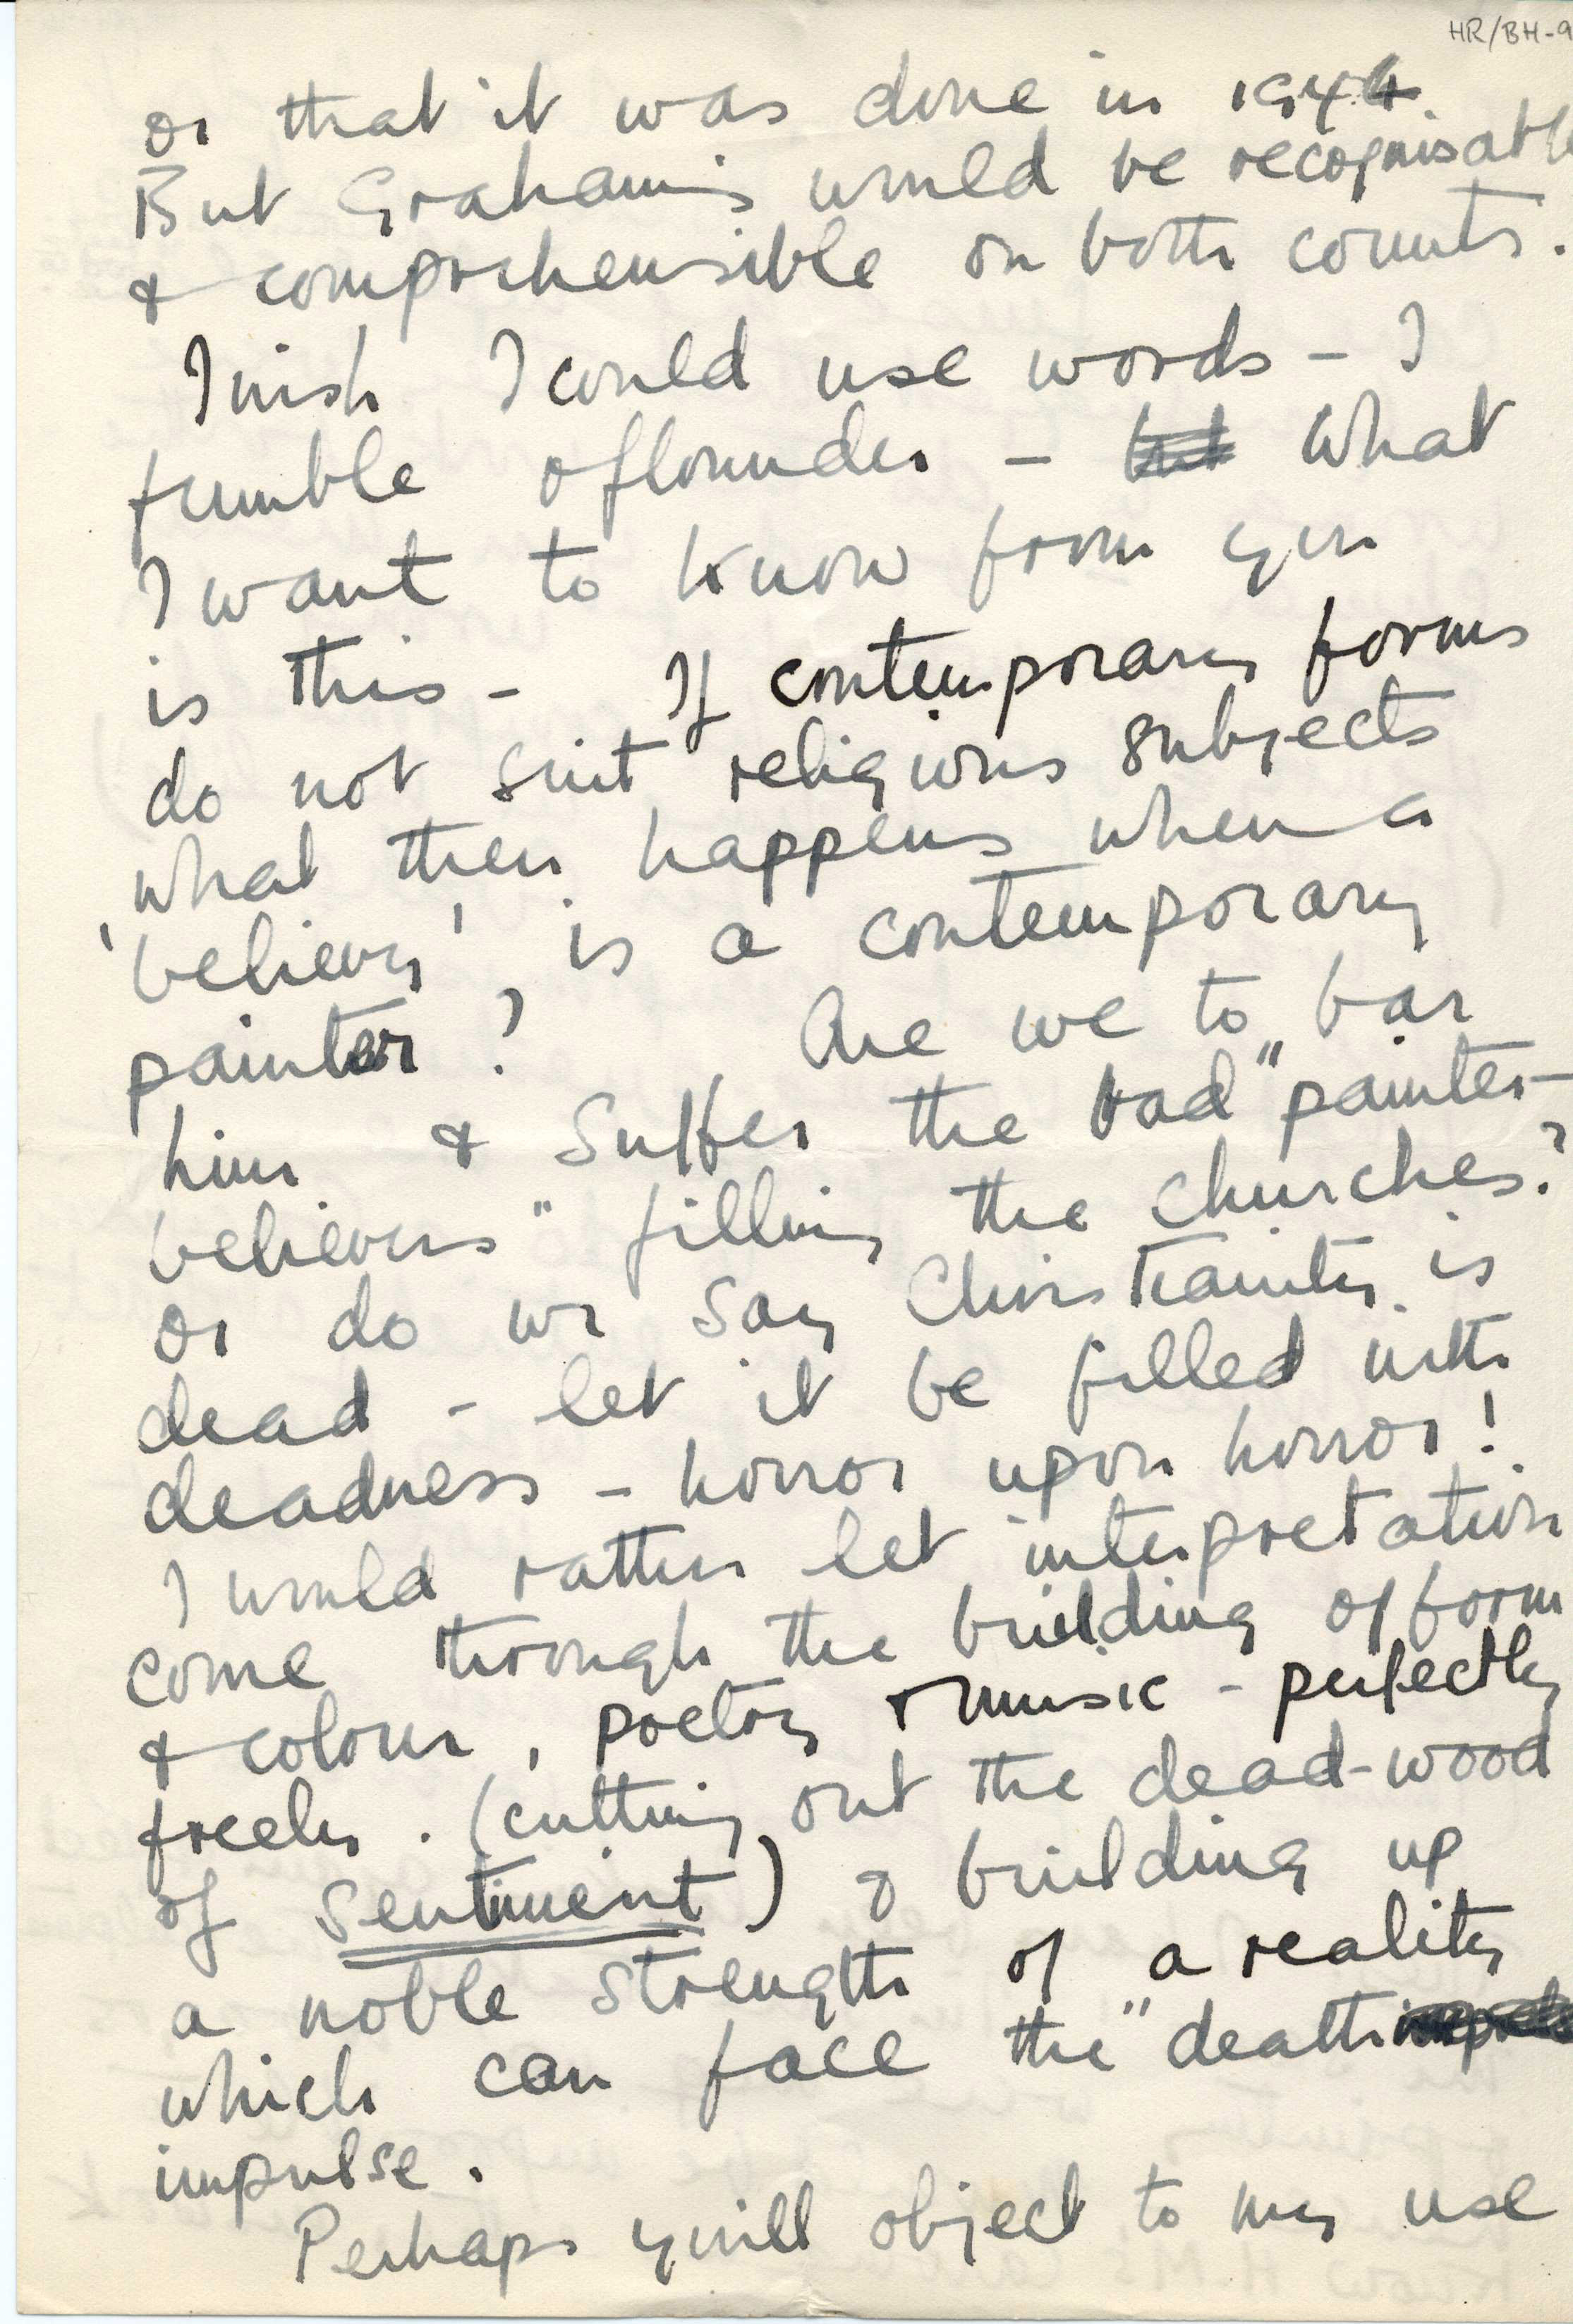 HR/BH-9
or that it was done in 1944.
But Graham's would be recognisable
& comprehensible on both counts.
I wish I could use words - I
fumble & flounder - but What
I want to know from you
is this - If contemporary forms
do not suit religious subjects
what then happens when a
'believer' is a contemporary
painter? Are we to bar
him & suffer the bad "painter-
believers" filling the churches?
or do we say Christianity is
dead - let it be filled with
deadness - horror upon horror!
I would rather let interpretation
come through the building of form
& colour, poetry & music - perfectly
freely. (cutting out the dead-wood
of sentiment) & building up
a noble strength of a reality
which can face the "death
impulse.
Perhaps y will object to my use